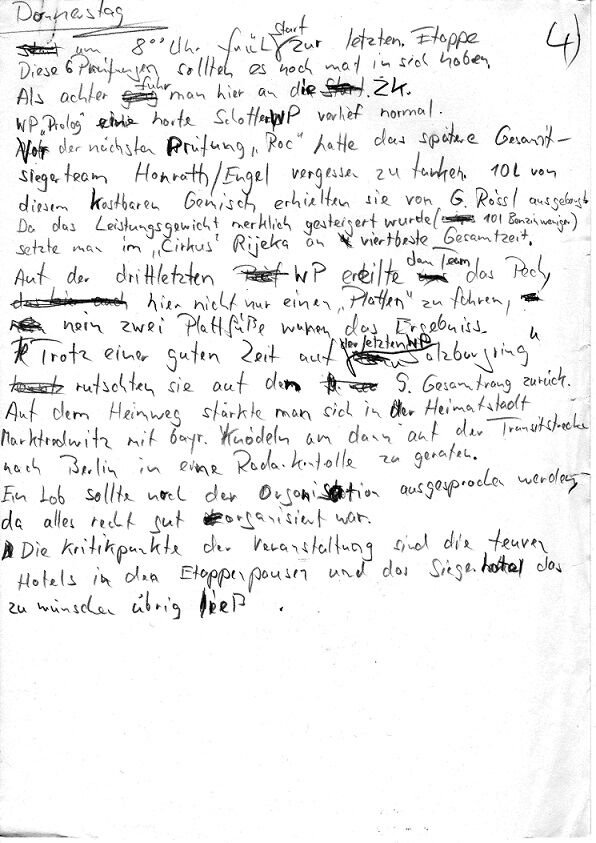 Donnerstag
4)
am 8°° Uhr früh start zur letzten Etappe
Diese 6 Prüfungen sollten es noch mal in sich haben
Als achter fuhr man hier an die ZK.
WP "Prolog" eine harte SchotterWP verlief normal.
Vor der nächsten Prüfung "Roc" hatte das spätere Gesamt-
siegerteam Honrath/Engel vergessen zu tanken. 10L von
diesem kostbaren Gemisch erhielten sie von G. Rössl
Da das Leistungsgewicht merklich gesteigert wurde (10l Benzin weniger)
setzte man im "Cirkus" Rijeka an viertbeste Gesamtzeit.
Auf der drittletzten WP ereilte dem Team das Pech,
hier nicht nur einen "Platten" zu fahren,
nein zwei Plattfüße waren das Ergebniss.
Trotz einer guten Zeit auf der letzten WP Salzburgring"
rutschten sie auf den 9. Gesamtrang zurück.
Auf dem Heimweg stärkte man sich in der Heimatstadt
Marktredwitz mit bayr. Knödeln um dann auf der Transitstrecke
nach Berlin in eine Radarkontolle zu geraten.
Ein Lob sollte noch der Organisation ausgesprochen werden,
da alles recht gut organisiert war.
Die Kritikpunkte der Veranstaltung sind die teuren
Hotels in den Etappenpausen und das Siegerhotel das
zu wünschen übrig ließ.